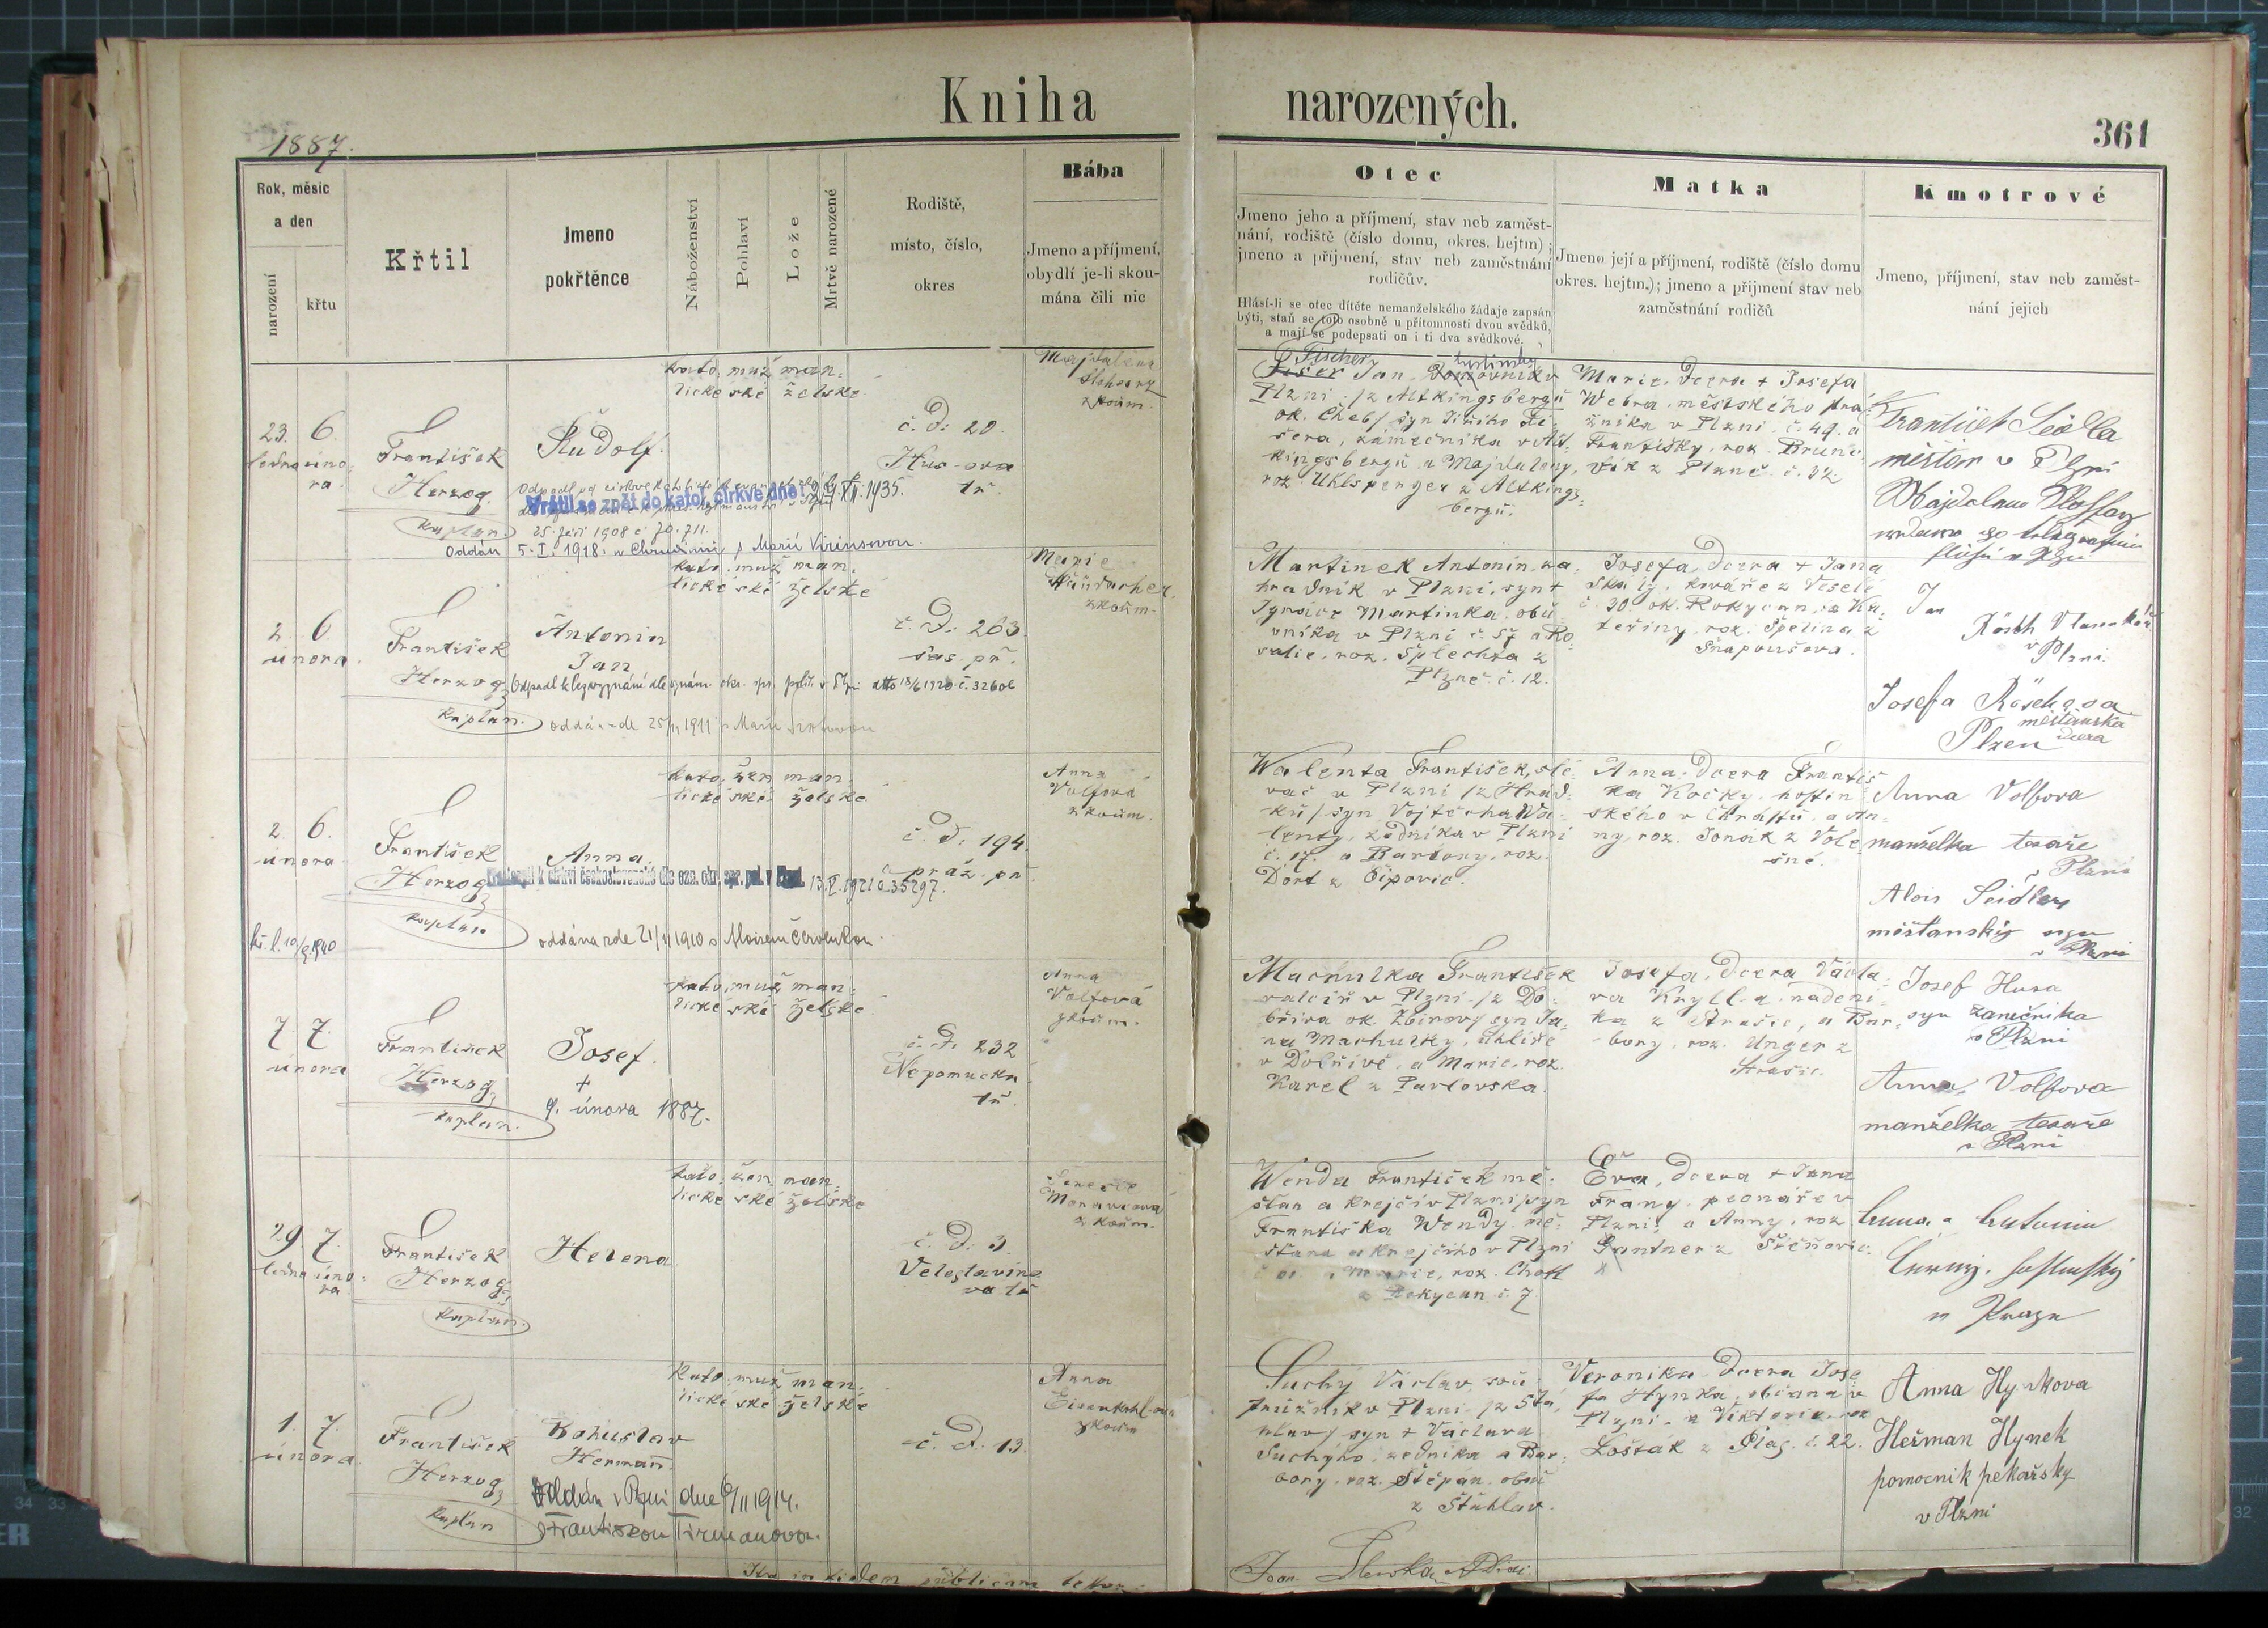 Kniha narozených.
361
1887.
Rok, měsíc
a den
narození
křtu
Křtil
Jmeno
pokřtěnce
Náboženství
Pohlaví
Lože
Mrtvě narozené
Rodiště,
místo, číslo,
okres
Bába
Jmeno a příjmení,
obydlí je-li skou-
mána čili nic
Otec
Jmeno jeho a příjmení, stav neb zaměst-
nání, rodiště (číslo domu, okres. hejtm);
jmeno a příjmení, stav neb zaměstnání
rodičův.
Hlásí-li se otec dítěte nemanželského žádaje zapsán
býti, staň se toto osobně u přítomnosti dvou svědků,
a mají se podepsati on i ti dva svědkové.
Matka
Jmeno její a příjmení, rodiště (číslo domu
okres. hejtm.); jmeno a příjmení stav neb
zaměstnání rodičů
Kmotrové
Jmeno, příjmení, stav neb zaměst-
nání jejich
23. 6.
ledna úno-
ra.
František
Herzog
kaplan.
Rudolf.
Vrátil se zpět do katol. církve dne
XII. 1935.
25. září 1908 č.
Oddán 5. I. 1918. v Chrudimi s Marií
kato- muž man-
lické ské želské
č. d. 20
Hus-ova
tř.
Majdalena
zkoum.
Fischer
Fišer Jan
Plzni /z Altkingsbergu
ok. Cheb/ syn Jiřího Fi-
šera, zámečníka v Alt-
kingsbergu a Majdaleny,
roz. Uhlsperger z Altkings-
bergu.
Marie, dcera + Josefa
Webra, městského strá-
žníka v Plzni č. 49. a
Františky, roz.
z Plzně č. 32
František Sedla
měšťan v Plzni
2. 6.
února
František
Herzog
kaplan.
Antonín
Jan
Odpadl k bezvyznání dle oznám. okr. spr. polit. v Plzni dtto 18/6 1920 č. 32606
oddán zde 25/11 1911 s Marií
kato- muž man-
lické ské želské
č. d. 263
sas. př.
Marie
zkoum.
Martinek Antonín, za-
hradník v Plzni, syn +
Ignáce Martinka, obu-
vníka v Plzni č. 57 a Ro-
salie, roz. Šplechta z
Plzně č. 12.
Josefa, dcera + Jana
Skály, kováře z Veselé
č. 30. ok. Rokycan, a Ka-
teřiny, roz. Špelina z
Šťáhlav
Jan
v Plzni
Josefa Röschova
měšťanská
dcera
Plzeň
2. 6.
února
František
Herzog
kaplan
kř. l. 10/9 1940
Anna.
k církvi československé dle ozn. okr. spr. pol. v Plzni 13. V. 1921 č. 35297.
oddána zde 21/11 1910 s Aloisem Červenkou
kato- žen. man-
lické ské želské
č. d. 194.
praž. př.
Anna
Volfová
zkoum.
Walenta František, slé-
vač v Plzni /z Hrád-
ku/ syn Vojtěcha Wa-
lenty, zedníka v Plzni
č. 17. a Barbory, roz.
Dort z Čipovic.
Anna, dcera Františ-
ka Kočky, hostin-
ského v Chrástu, a An-
ny, roz. Jonák z Vole-
šné.
Anna Volfova
manželka tesaře
v Plzni
Alois Seidler
měšťanský syn
v Plzni
7. 7.
února
František
Herzog
kaplan.
Josef.
+
9. února 1887.
kato- muž man-
lické ské želské
č. d. 232
Nepomucká
tř.
Anna
Volfová
zkoum.
Machulka František
valcíř v Plzni /z Do-
bříva ok. Zbirov/ syn Ja-
na Machulky, uhlíře
v Dobřívě, a Marie, roz.
Karel z Pavlovska.
Josefa, dcera Václa-
va Krylla, nádení-
ka z Strašic, a Bar-
bory, roz. Unger z
Strašic.
Josef Husa
syn zámečníka
v Plzni
Anna Volfova
manželka tesaře
v Plzni
29. 7.
ledna úno-
ra
František
Herzog
kaplan.
Helena
kato- žen. man-
lické ské želské
č. d. 3.
Veleslavíno-
va tř.
Moravcová
zkoum.
Wenda František mě-
šťan a krejčí v Plzni, syn
Františka Wendy, mě-
šťana a krejčího v Plzni
a Marie, roz. Chotl
z Rokycan č. 7
Eva, dcera + Jana
Frany, peonáře v
Plzni, a Anny, roz
Gantner z Štěnovic.
Anna a Antonin
Černý,
v Praze
1. 7.
února
František
Herzog
kaplan
Bohuslav
Herman.
Oddán v Plzni dne 6/II 1914.
s Františkou
kato- muž man-
lické ské želské
č. d. 13.
Anna
zkoum
Suchý Václav sou-
stružník v Plzni /z Šťá-
hlav/ syn + Václava
Suchýho, zedníka a Bar-
bory, roz. Štěpán, obou
z Štáhlav.
Veronika dcera Jose-
fa Hynka, občana v
Plzni, a Viktorie, roz
Lošťák z Plas. č. 22.
Anna Hynkova
Heřman Hynek
pomocnik pekařsky
v Plzni
Ita in fidem publicam